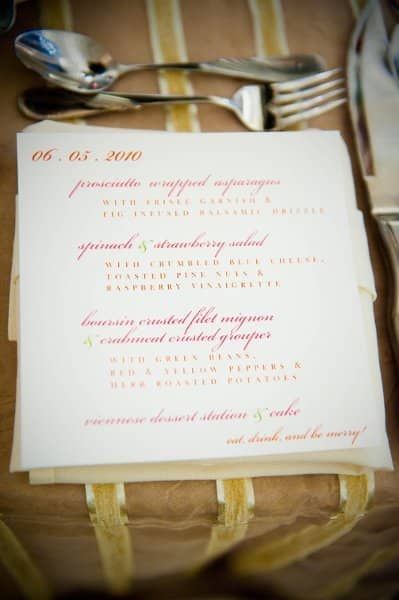 06 . 05 . 2010
prosciutto wrapped asparagus
WITH FRISEE GARNISH &
FIG INFUSED BALSAMIC DRIZZLE
spinach & strawberry salad
WITH CRUMBLED BLUE CHEESE,
TOASTED PINE NUTS &
RASPBERRY VINAIGRETTE
boursin crusted filet mignon
& crabmeat crusted grouper
WITH GREEN BEANS,
RED & YELLOW PEPPERS &
HERB ROASTED POTATOES
viennese dessert station & cake
eat, drink, and be merry!